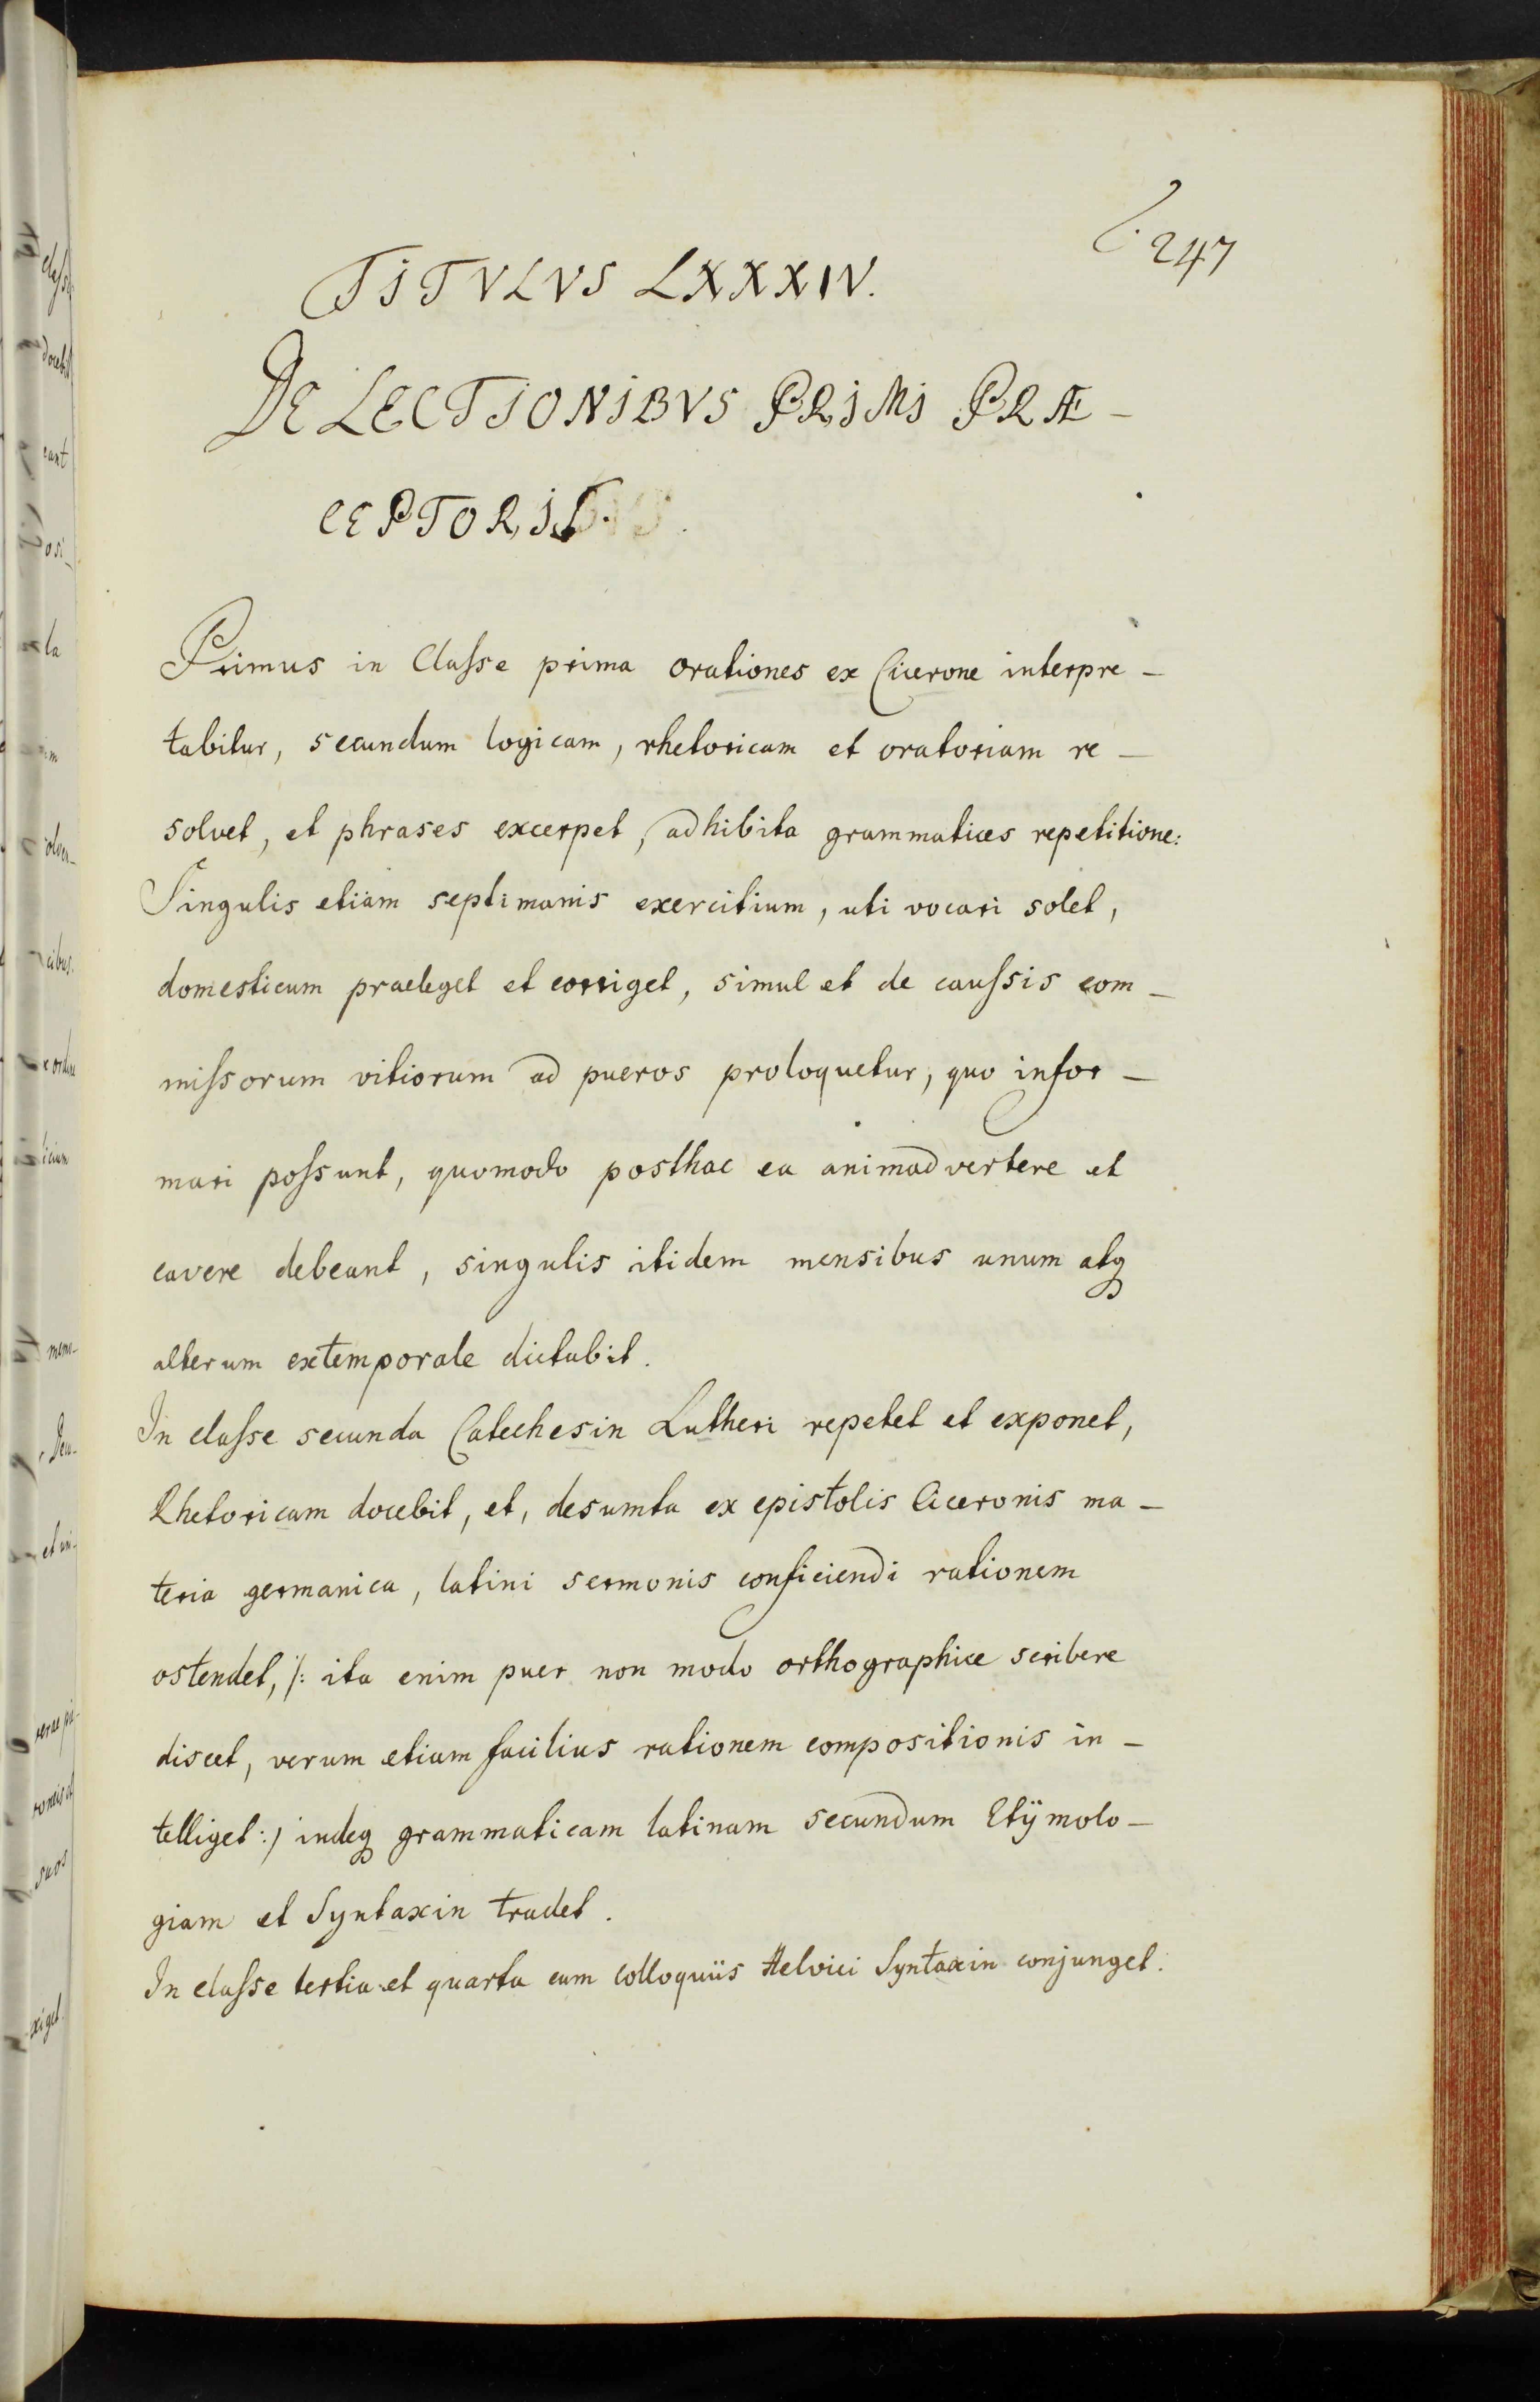 247
TITVLVS LXXXIV.
DE LECTIONIBVS PRIMI PRÆ-
CEPTORIS.
Primus in Classe prima orationes ex Cicerone interpre-
tabitur, secundum logicam, rhetoricam et oratoriam re-
solvet, et phrases excerpet, adhibita grammatices repetitione:
Singulis etiam septimanis exercitium, uti vocari solet,
domesticum praeleget et corriget, simul et de caussis com-
missorum vitiorum ad pueros proloquetur, quo infor-
mari possunt, quomodo posthac ea animadvertere et
cavere debeant, singulis itidem mensibus unum atq
alterum extemporale dictabit.
In classe secunda Catechesin Lutheri repetet et exponet,
Rhetoricam docebit, et, desumta ex epistolis Ciceronis ma-
teria germanica, latini sermonis conficiendi rationem
ostendet, /: ita enim puer non modo orthographice scribere
discet, verum etiam facilius rationem compositionis in-
telliget :/ indeq grammaticam latinam secundum Etÿmolo-
giam et Syntaxin tradet.
In classe tertia et quarta cum Colloquiis Helvici Syntaxin conjunget.